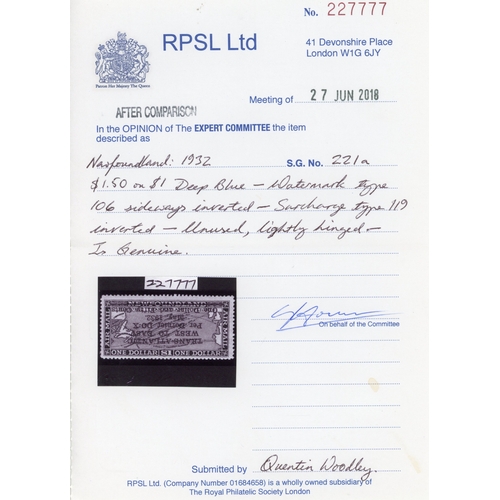 No. 227777
RPSL Ltd
41 Devonshire Place
London W1G 6JY
Patron Her Majesty The Queen
Meeting of 27 JUN 2018
AFTER COMPARISON
In the OPINION of The EXPERT COMMITTEE the item
described as
Newfoundland: 1932 S.G. No. 221a
$1.50 on $1 Deep Blue – Watermark type
106 sideways inverted – Surcharge type 119
inverted – Unused, lightly hinged –
Is Genuine.
227777
NEWFOUNDLAND
One Dollar and Fifty Cents
May, 1932
Per Dornier DO-X
WEST TO EAST
TRANS-ATLANTIC
AIR MAIL
ONE DOLLAR $1 ONE DOLLAR
On behalf of the Committee
Submitted by Quentin Woodley.
RPSL Ltd. (Company Number 01684658) is a wholly owned subsidiary of
The Royal Philatelic Society London